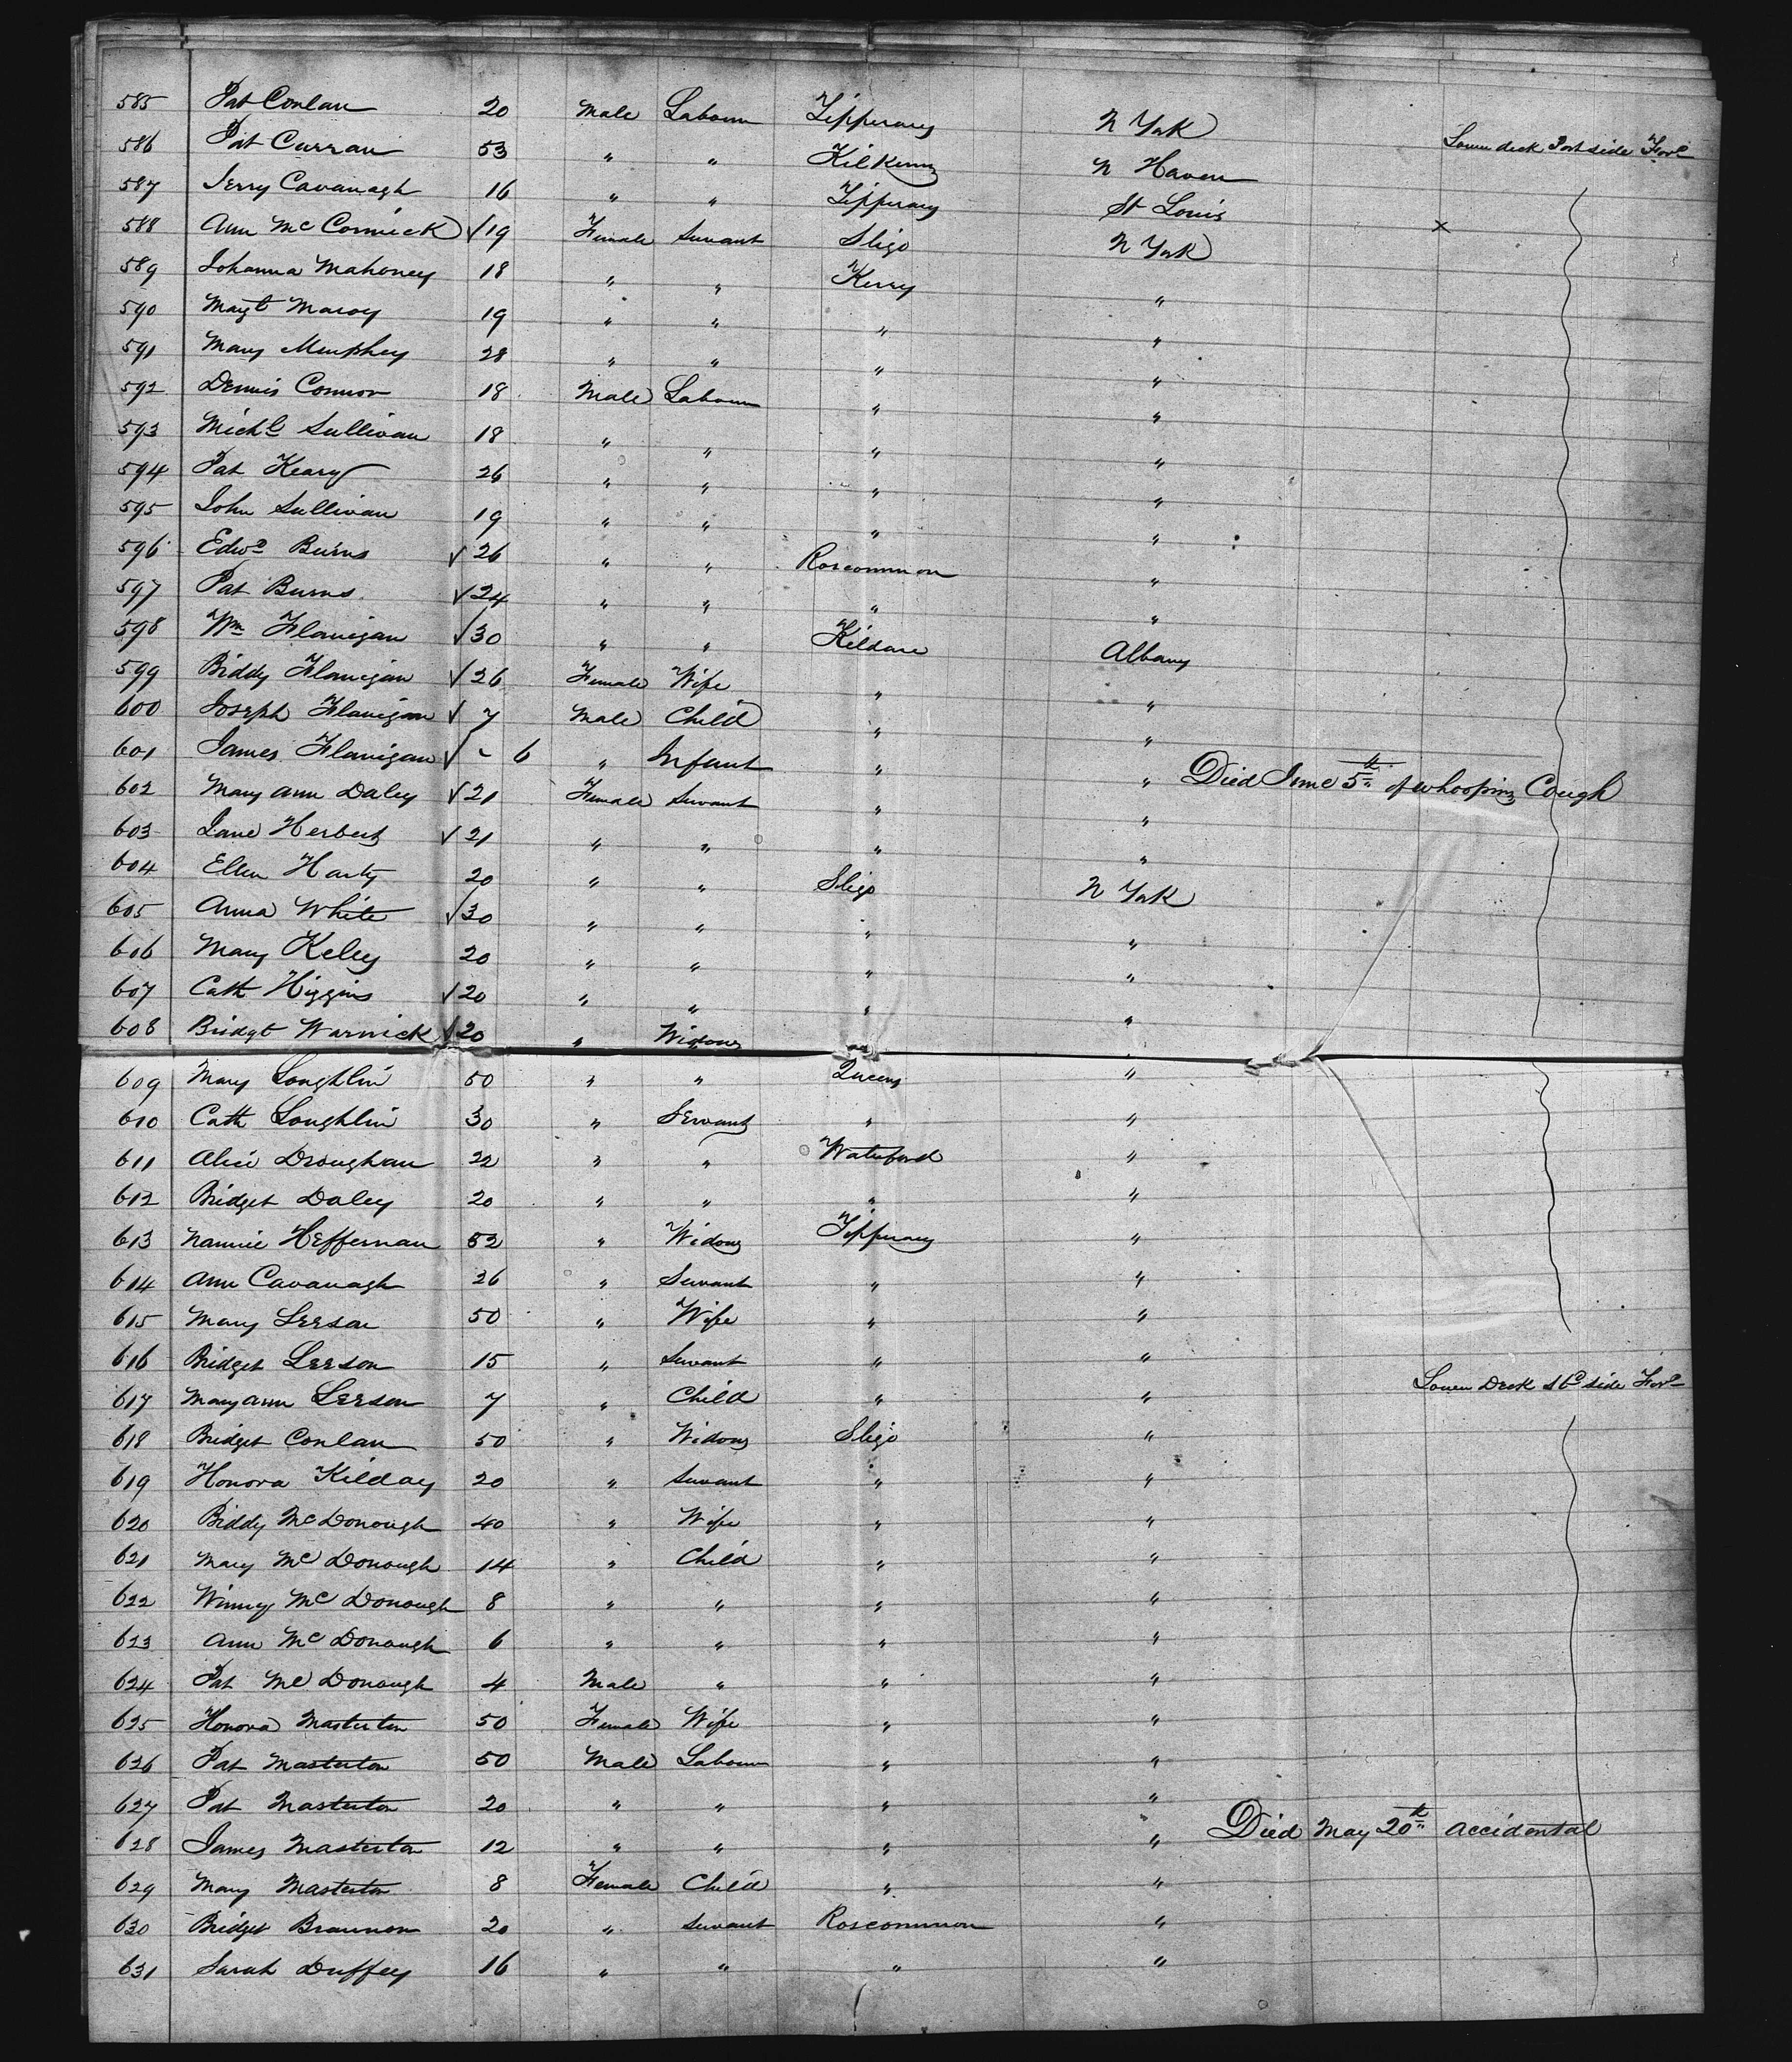 585 Pat Conlan 20 Male Labourer Tipperary N York
586 Pat Curran 53 " " Kilkenny N Haven Lower deck Port side For^d
587 Jerry Cavanagh 16 " " Tipperary St Louis
588 Ann McCormick √ 19 Female Servant Sligo N York ×
589 Johanna Mahoney 18 " " Kerry "
590 Margt Maroy 19 " " " "
591 Mary Murphey 28 " " " "
592 Dennis Connor 18 Male Labourer " "
593 Michl Sullivan 18 " " " "
594 Pat Keary 26 " " " "
595 John Sullivan 19 " " " "
596 Edwd Burns √ 26 " " Roscommon "
597 Pat Burns √ 24 " " " "
598 Wm Flanigan √ 30 " " Kildare Albany
599 Biddy Flanigan √ 26 Female Wife " "
600 Joseph Flanigan √ 7 Male Child " "
601 James Flanigan √ - 6 " Infant " " Died June 5th of whooping Cough
602 Mary Ann Daley √ 21 Female Servant " "
603 Jane Herbert √ 21 " " " "
604 Ellen Harty 20 " " Sligo N York
605 Anna White √ 30 " " " "
606 Mary Keley 20 " " " "
607 Cath Higgins √ 20 " " " "
608 Bridgt Warnick √ 20 " Widow "
609 Mary Loughlin 50 " " Queens "
610 Cath Loughlin 30 " Servant " "
611 Alice Droughan 22 " " Waterford "
612 Bridget Daley 20 " " " "
613 Nannie Heffernan 52 " Widow Tipperary "
614 Ann Cavanagh 26 " Servant " "
615 Mary Leeson 50 " Wife " "
616 Bridget Leeson 15 " Servant " "
617 Mary Ann Leeson 7 " Child " " Lower Deck Stbd side Ford
618 Bridget Conlan 50 " Widow Sligo "
619 Honora Kilday 20 " Servant " "
620 Biddy McDonough 40 " Wife " "
621 Mary McDonough 14 " Child " "
622 Winny McDonough 8 " " " "
623 Ann McDonough 6 " " " "
624 Pat McDonough 4 Male " " "
625 Honora Masterton 50 Female Wife " "
626 Pat Masterton 50 Male Labourer " "
627 Pat Masterton 20 " " " "
628 James Masterton 12 " " " " Died May 20th accidental
629 Mary Masterton 8 Female Child " "
630 Bridget Brannon 20 " Servant Roscommon "
631 Sarah Duffey 16 " " " "